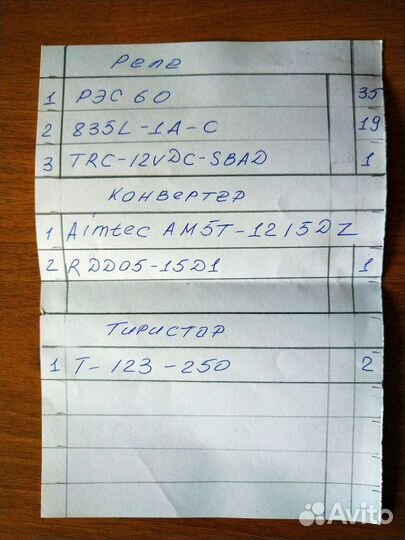 Реле
1 РЭС 60 35
2 835L-1A-C 19
3 TRC-12VDC-SBAD 1
Конвертер
1 Aimtec AM5T-1215DZ
2 RDD05-15D1 1
Тиристор
1 Т-123-250 2
Avito